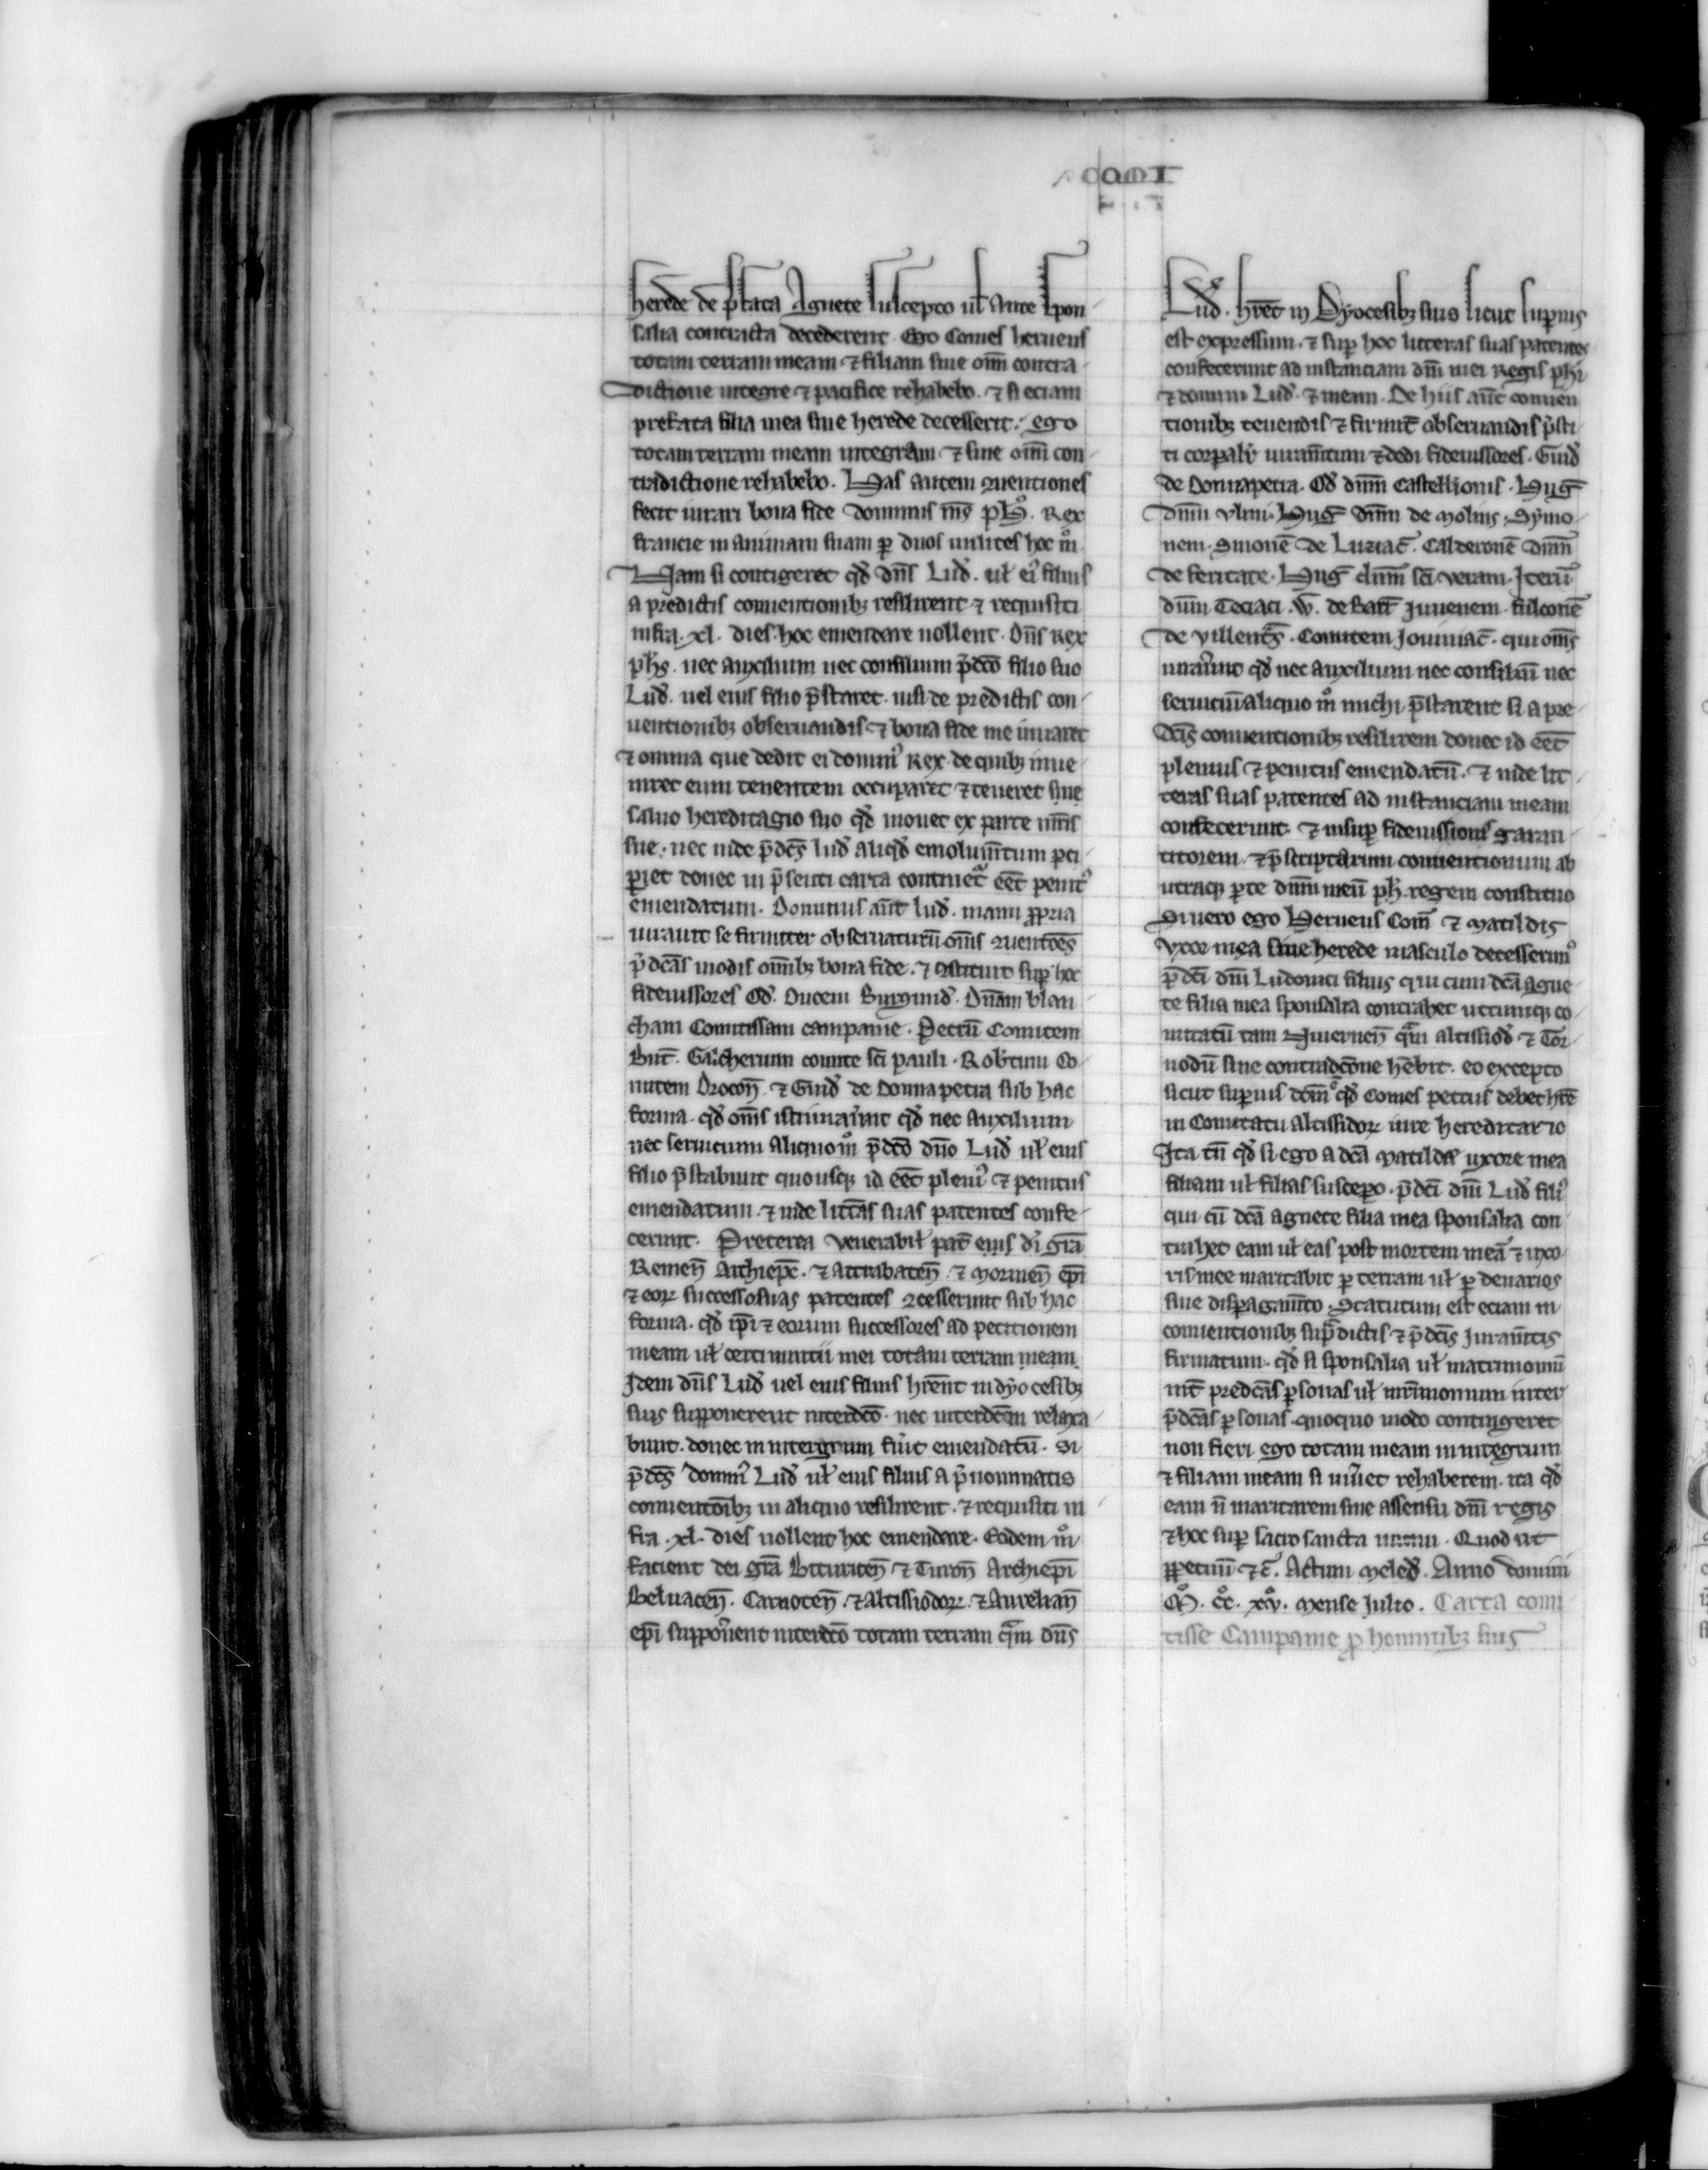 herede de p̄fata Agnete suscepto ul̄ ante spon
salia contracta decederent. Ego Comes herueus
totam terram meam ⁊ filiam sine om̄i contra
dictione integre ⁊ pacifice rehabebo. ⁊ si eciam
prefata filia mea sine herede decesserit. ego
totam terram meam integram ⁊ sine om̄i con
tradictione rehabebo. Has autem ꝯuentiones
fecit iurari bona fide dominus m̄s ph̄s. Rex
francie in animam suam ꝑ duos milites hoc m̊.
Nam si contigeret qd̄ dn̄s Lud̄. ul̄ ei᷒ filius
a predictis conuentionibꝫ resilirent ⁊ requisiti
infra .xl. dies hoc emendare nollent. Dn̄s Rex
ph̄s. nec auxilium nec consilium p̄dc̄o filio suo
Lud̄. uel eius filio p̄staret. nisi de predictis con
uentionibꝫ obseruandis ⁊ bona fide me iuuaret
⁊ omnia que dedit ei domin᷒ Rex de quibꝫ inue
niret eum tenentem occuparet ⁊ teneret sine
saluo hereditagio suo qd̄ mouet ex parte mr̄is
sue. nec inde p̄dc̄s lud̄ aliqd̄ emolum̄tum ꝑci
ꝑiet donec in p̄senti carta continet᷑ eēt penit᷒
emendatum. Dominus aūt lud̄. manu ꝓpria
iurauit se firmiter obseruaturū om̄s ꝯuentōēs
p̄dc̄as modis om̄ibꝫ bona fide. ⁊ ꝯstituit suꝑ hoc
fideiussores Od̄. Ducem Burgund̄. Dn̄am blan
cham Comitissam campanie. Petrū Comitem
Brit̄. Galcherum comite sc̄i pauli. Rob̄tum Co
mitem Drocen̄ ⁊ Guid̄ de Donna petra sub hac
forma. qd̄ om̄s isti iurau̓nt qd̄ nec auxilium
nec seruicium aliquo m̊ p̄dc̄o dn̄o Lud̄ ul̄ eius
filio p̄stabunt quousqꝫ id eēt pleni᷒ ⁊ penitus
emendatum. ⁊ inde litt̄as suas patentes confe
cerunt. Preterea venerabil̄ pat̄ eius dī gr̄a
Remen̄ Archiepc̄. ⁊ Attrabaten̄ ⁊ Morinen̄ ep̄i
⁊ eoꝝ successo suas patentes ꝯcesserunt sub hac
forma. qd̄ ip̄i ⁊ eorum successores ad petitionem
meam ul̄ certi nuntii mei totam terram meam
Idem dn̄s Lud̄ uel eius filius hr̄ent in dyocesibꝫ
suis supponerent interdc̄o. nec interdc̄m relaxa
bunt. donec in intergrum fu̓it emendatū. Si
p̄dc̄s domin᷒ Lud̄ ul̄ eius filius a p̄nominatis
conuentōibꝫ in aliquo resilirent. ⁊ requisiti in
fra .xl. dies nollent hoc emendare. Eodem m̊
facient dei gr̄a Bituricen̄ ⁊ Turon̄ Archiep̄i
Beluacen̄. Carnoten̄. ⁊ Altissiodoꝝ. ⁊ Aurelian̄
ep̄i suppon̓ent interdc̄o totam terram q̄m dn̄s
Lud̄. hr̄et in Dyocesibꝫ suis sicut suꝑius
est expressum. ⁊ suꝑ hoc litteras suas patentes
confecerunt ad instanciam dn̄i mei Regis ph̄i
⁊ domini Lud̄. ⁊ meam. De hiis aūt conuen
tionibꝫ tenendis ⁊ firmit̄ obseruandis p̄sti
ti corꝑalit᷑ iuram̄tum ⁊ dedi fideiussores. Guid̄
de Donnapetra. Od̄ dn̄m Castellionis. Huḡ
dn̄m vlmi. Huḡ dn̄m de Molins. Symo
nem. Simonē de Luziac̄. Calderonē dn̄m
de feritate. Huḡ dn̄m sc̄i verani. Iterū
dn̄m Tociaci. W. de Barr̄ Iuuenem. fulconē
de villen̄s. Comitem Iouiniac̄. qui om̄s
iurau̓nt qd̄ nec auxilium nec consiliū nec
seruiciū aliquo m̊ michi p̄starent si a pre
dc̄is conuentionibꝫ resilirem donec id eēt
plenius ⁊ penitus emendatū. ⁊ inde lit
teras suas patentes ad instanciam meam
confecerunt. ⁊ insuꝑ fideiussionis garan
titorem. ⁊ p̄scriptarum conuentionum ab
utraqꝫ ꝑte dn̄m meū ph̄. regem constituo
Si uero ego Herueus Com̄ ⁊ Matildis
Vxor mea sine herede masculo decesserim᷒
p̄dc̄i dn̄i Ludouici filius qui cum dc̄a Agne
te filia mea sponsalia contrahet utrumqꝫ co
mitatū tam Niuernen̄ q̄m altissiod̄ ⁊ Tor
nodū sine contradcōne hēbit. eo excepto
sicut suꝑius dc̄m ē qd̄ Comes petrus debet hr̄e
in Comitatu Altissidoꝝ iure hereditario
Ita tn̄ qd̄ si ego a dc̄a Matilde uxore mea
filiam ul̄ filias suscepo. p̄dc̄i dn̄i Lud̄ fili᷒
qui cū dc̄a Agnete filia mea sponsalia con
trahet eam ul̄ eas post mortem meā ⁊ uxo
ris mee maritabit ꝑ terram ul̄ ꝑ denarios
sine disꝑagam̄to. Statutum est eciam in
conuentionibꝫ sup̄dictis ⁊ p̄dc̄is Iuram̄tis
firmatum. qd̄ si sponsalia ul̄ matrimoniū
int̄ predc̄as ꝑsonas ul̄ mr̄imonium inter
p̄dc̄as ꝑsonas quoquo modo contingeret
non fieri ego totam meam in integrum
⁊ filiam meam si uiu̓et rehaberem. ita qd̄
eam n̄ maritarem sine assensu dn̄i regis
⁊ hoc suꝑ sacro sancta iuraui. Quod ut
ꝑpetuū ⁊c̄. Actum Meled̄. Anno domini
M̊. cc̊. xv̊. Mense Julio. Carta comi
tisse Campanie ꝓ hominibꝫ suis